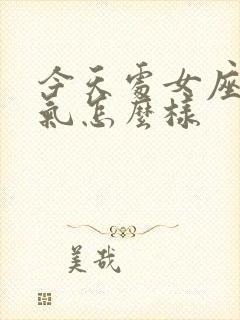 今天處女座
氣怎麼樣
美哉